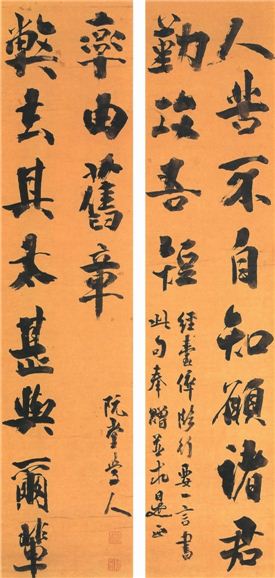 人苦不自知願諸君
勤攻吾短
經臺倅臨行要一言書
此句奉贈並求是正
弊去其太甚與爾輩
率由舊章
阮堂學人